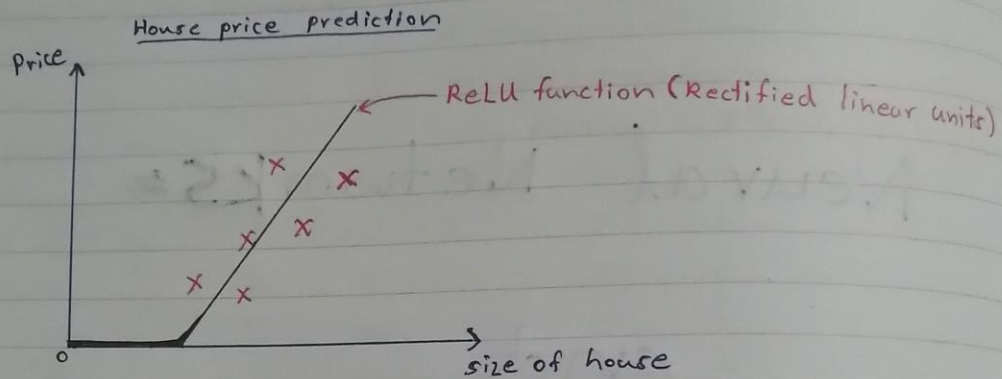 House price prediction
Price
ReLU function (Rectified linear units)
0
size of house